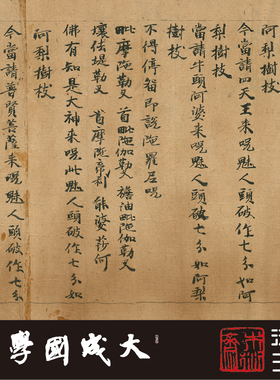 阿梨樹枝
今當請四天王来呪魅人頭破作七分如阿
梨樹枝
今當請牛頭阿婆来呪魅人頭破作七分如阿梨
樹枝
不得停留即說陁羅尼呪
毗摩陁勒叉 首毗陁伽勒叉 毗陁伽勒叉
佉堤勒叉 首摩陁帝利 婆莎何
佛有知是大神来呪此魅人頭破作七分如
阿梨樹枝
今當請普賢菩薩来呪魅人頭破作七分
大成國學